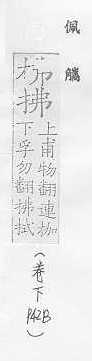 佩觿
枷拂
上甫物翻連枷
下孚勿翻拂拭
(卷下
P42B)